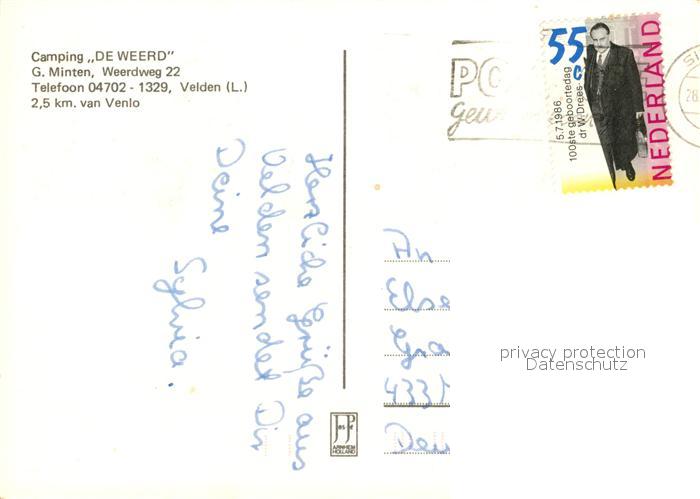 Camping „DE WEERD"
G. Minten, Weerdweg 22
Telefoon 04702 - 1329, Velden (L.)
2,5 km. van Venlo
Herzliche Grüße aus
Velden sendet Dir
Deine
Sylvia.
55
c
5.7.1986
100ste geboortedag
dr W. Drees
NEDERLAND
PO
An
Else
4331
privacy protection
Datenschutz
JosPe
ARNHEM
HOLLAND